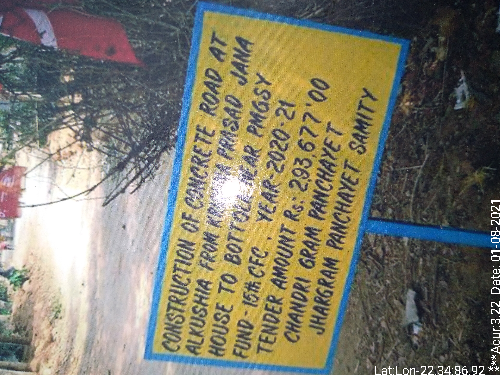 CONSTRUCTION OF CONCRETE ROAD AT
ALKUSHA FROM PROSAD JANA
HOUSE TO PMGSY
FUND- 15th CFC, YEAR-2020-21
TENDER AMOUNT Rs: 293,677'00
CHANDRI GRAM PANCHAYET
JHARGRAM PANCHAYET SAMITY
Lat:Lon-22.34:86.92
***Acur:3.22 Date: 01-08-2021